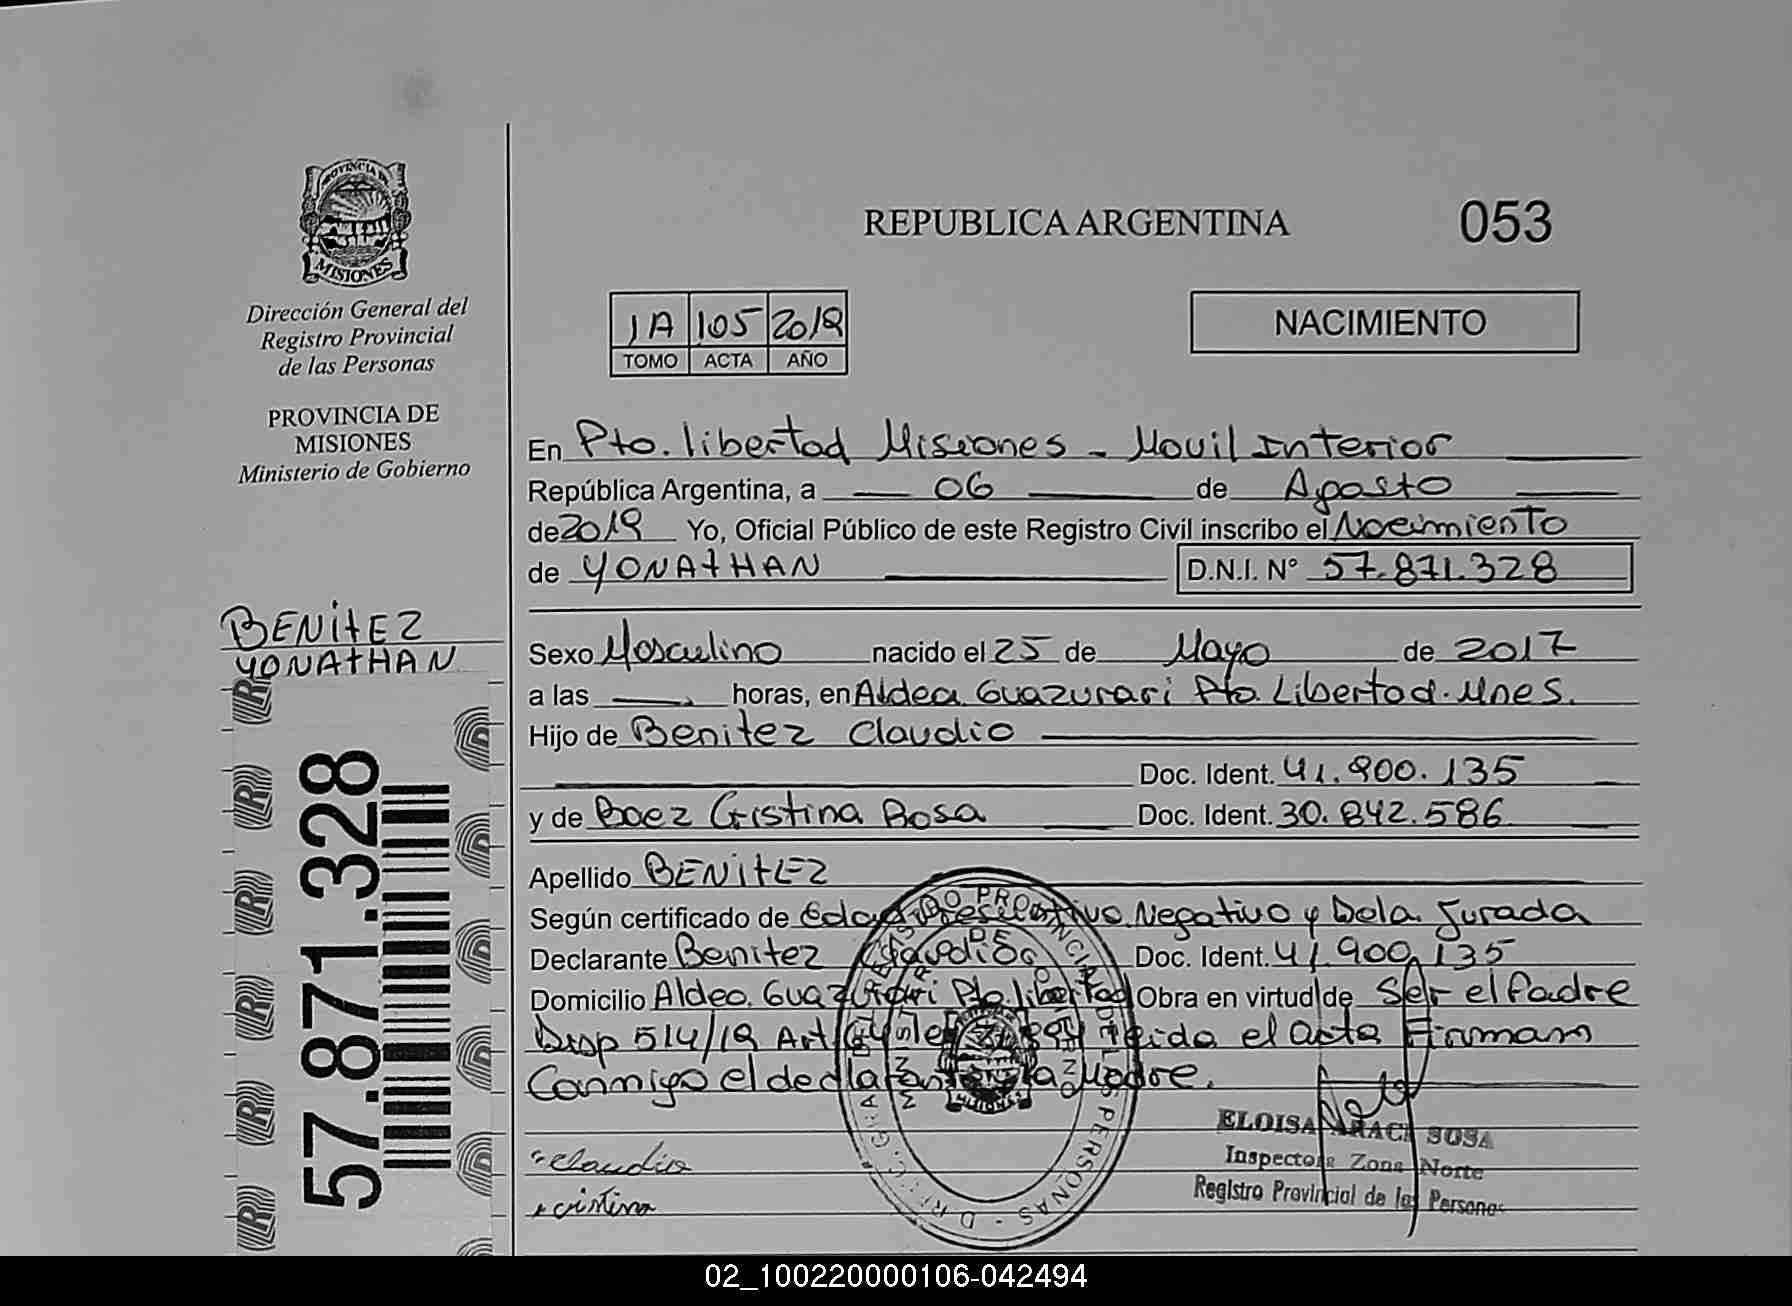 PROVINCIA DE
MISIONES
Dirección General del
Registro Provincial
de las Personas
PROVINCIA DE
MISIONES
Ministerio de Gobierno
BENITEZ
YONATHAN
57.871.328
REPUBLICA ARGENTINA
053
1A 105 2019
TOMO ACTA AÑO
NACIMIENTO
En Pto. Libertad Misiones - Movil Interior
República Argentina, a 06 de Agosto
de 2019 Yo, Oficial Público de este Registro Civil inscribo el Nacimiento
de YONATHAN D.N.I. N° 57.871.328
Sexo Masculino nacido el 25 de Mayo de 2017
a las horas, en Aldea Guazurari Pto. Libertad. Mnes.
Hijo de Benitez Claudio
Doc. Ident. 41.900.135
y de Baez Cristina Rosa Doc. Ident. 30.842.586
Apellido BENITEZ
Según certificado de Edad Presuntivo Negativo y Dcla. Jurada
Declarante Benitez Claudio Doc. Ident. 41.900.135
Domicilio Aldea Guazurari Pto. Libertad Obra en virtud de Ser el Padre
Disp 514/19 Art el acta Firman
Conmigo el declarante la Madre.
Claudio
cristina
ELOISA ARACI SOSA
Inspectora Zona Norte
Registro Provincial de las Personas
MISIONES
02_100220000106-042494